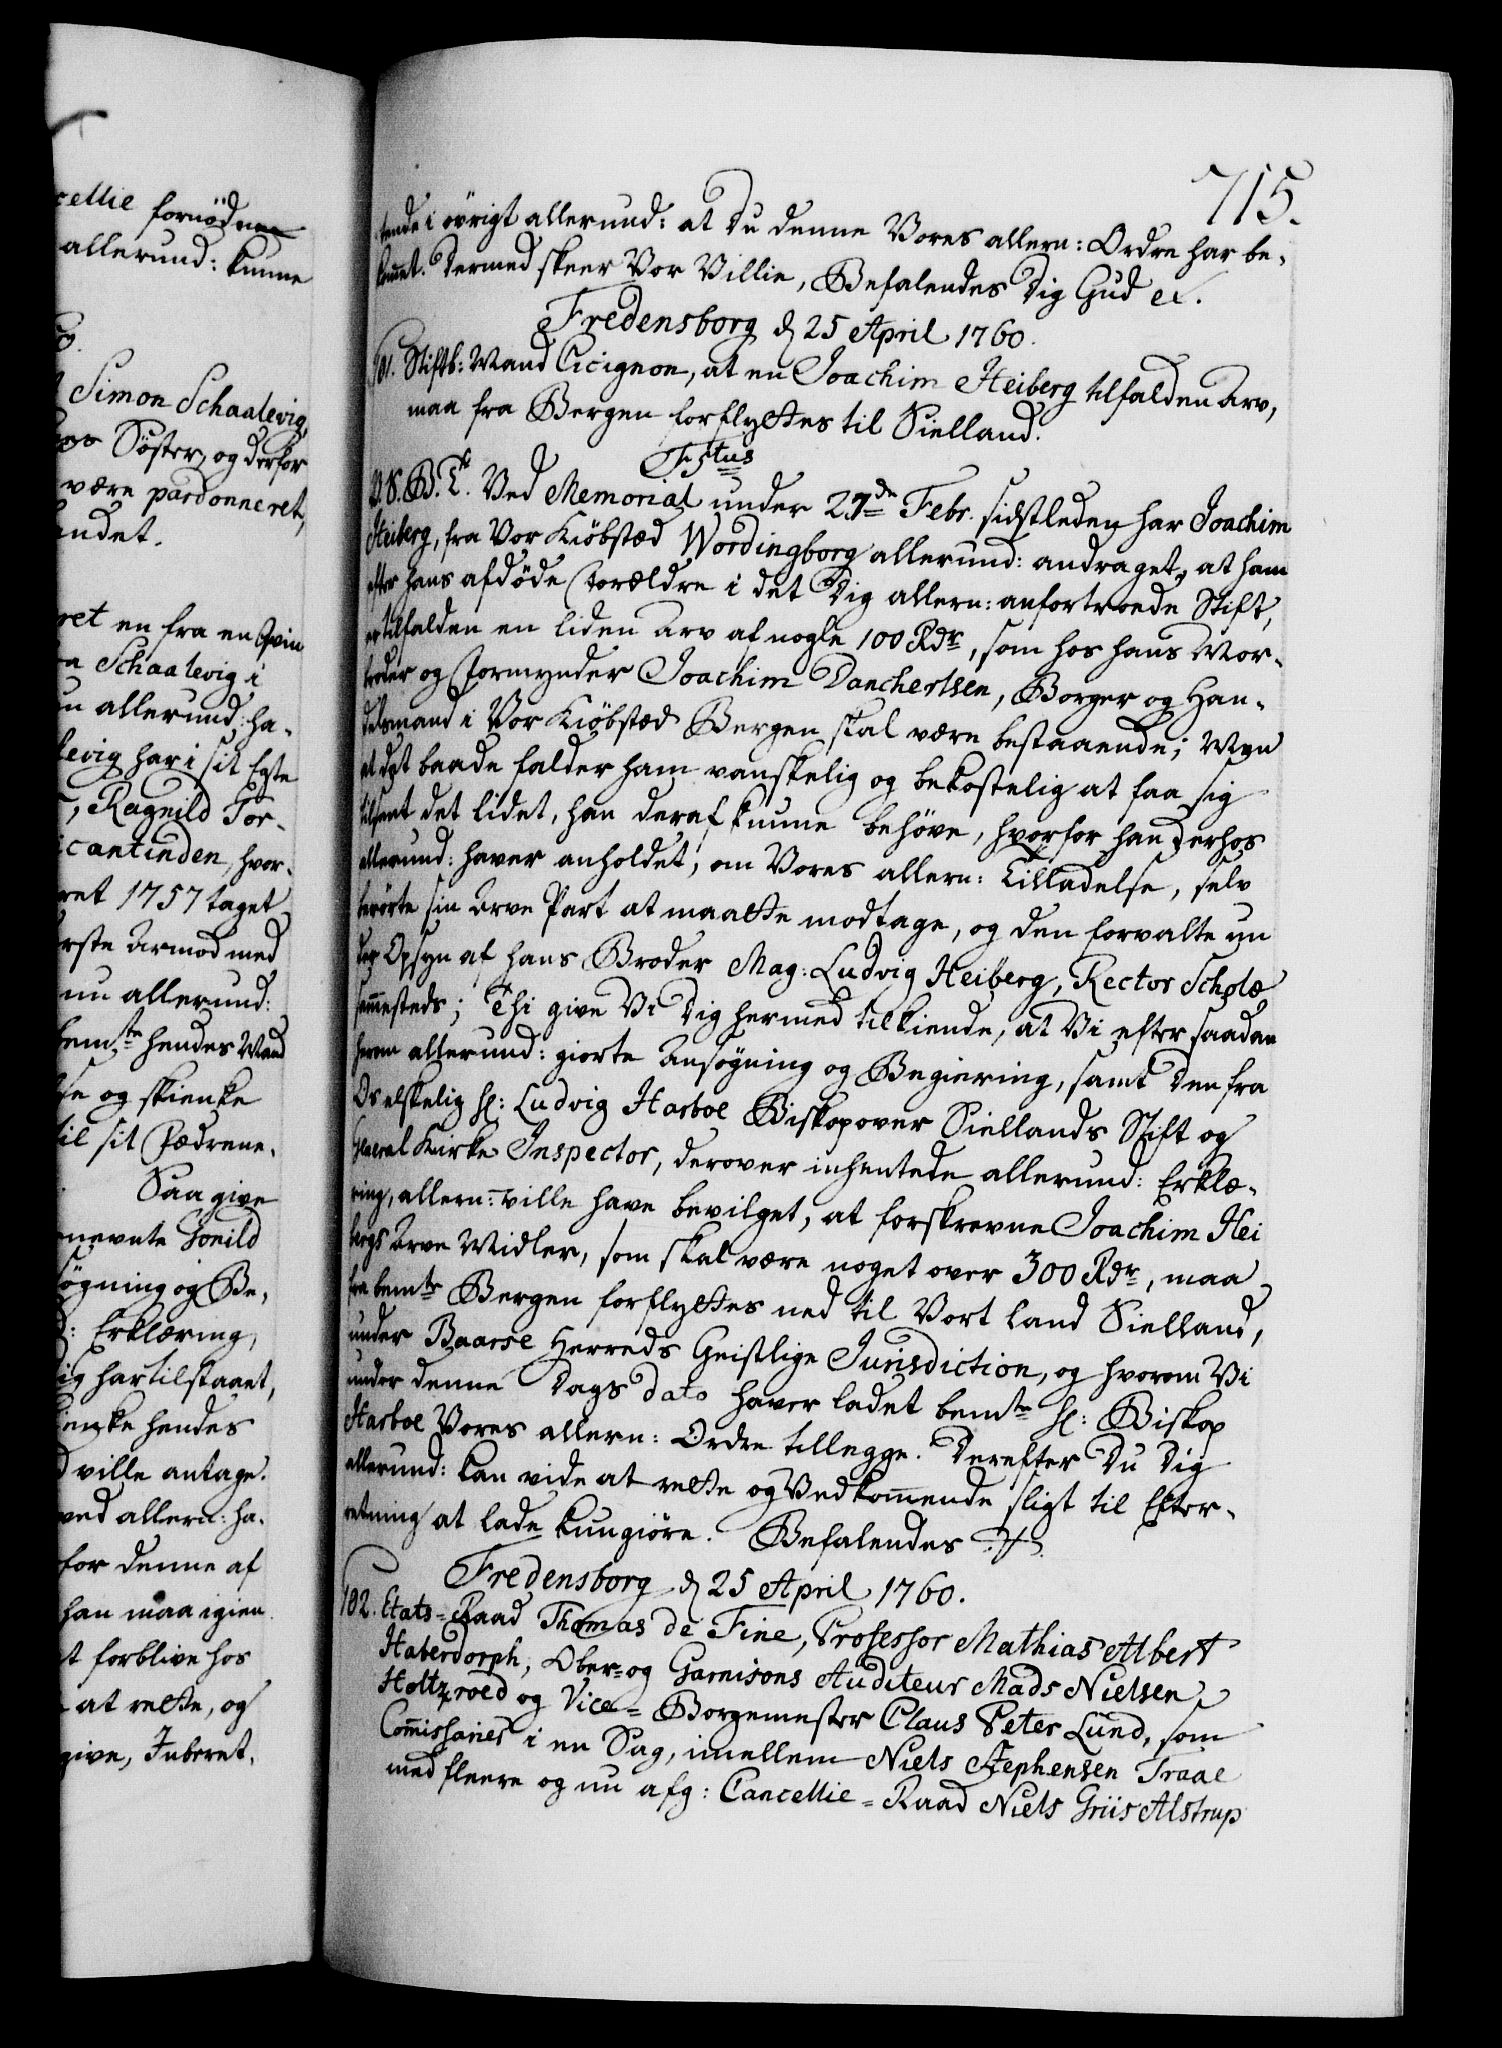 cellie fornøden
allerund: kunne
Simon Schaalevig,
Søster, og derfor
være pardonneret,
andet.
ret en fra en Qvin
Schaalevig i
allerund: ha-
levig har i sit Egte
Ragnild Tor-
icantinden, hvor-
ret 1757 taget
ørste Armod med
nu allerund:
bemte hendes Mand
se og skienke
til sit Fædrene-
Saa give
nevnte Gonild
søgning og Be-
Erklæring,
ig har tilstaaet,
hendes
ville antage.
ved allern: ha-
for denne af
han maa igien
t forblive hos
at rette, og
give, Inberet-
715.
tende i øvrigt allerund: at Du denne Vores allern: Ordre har be-
kommet. Dermed skeer Vor Villie, Befalendes Dig Gud etc.
Fredensborg d 25 April 1760.
101. Stiftb: Mand Cicignon, at en Joachim Heiberg tilfalden Arv,
maa fra Bergen forflyttes til Sielland.
F5tus
V. S. G. T. Ved Memorial under 27de Febr. sidstleden har Joachim
Heiberg, fra Vor Kiøbstæd Wordingborg allerund: andraget, at ham
efter hans afdøde Forældre i det Dig allern: anfortroede Stift,
er tilfalden en liden Arv af nogle 100 Rdr, som hos hans Mor-
broder og Formynder Joachim Danchertsen, Borger og Han-
delsmand i Vor Kiøbstæd Bergen skal være bestaaende; Men
at det baade falder ham vanskelig og bekostelig at faa sig
tilsent det lidet, han deraf kunne behøve, hvorfor han derhos
allerund: haver anholdet, om Vores allern: Tilladelse, selv
berørte sin Arve Part at maatte modtage, og den forvalte un
der Opsyn af hans Broder Mag: Ludvig Heiberg, Rector Scholæ
sammesteds; Thi give Vi Dig hermed tilkiende, at Vi efter saadan
herom allerund: giorte Ansøgning og Begiering, samt den fra
Os elskelig Hr: Ludvig Harboe Biskop over Siellands Stift og
General Kirke Inspector, derover inhentede allerund: Erklæ-
ring, allern: ville have bevilget, at forskrevne Joachim Hei
bergs Arve Midler, som skal være noget over 300 Rdr, maa
fra bemte Bergen forflyttes ned til Vort Land Sielland,
under Baarse Herreds Geistlige Jurisdiction, og hvorom Vi
under denne Dags dato haver ladet bemte Hr: Biskop
Harboe Vores allern: Ordre tillegge. Derefter Du Dig
allerund: kan vide at rette og Vedkommende sligt til Efter-
retning at lade kundgiøre. Befalendes
Fredensborg d 25 April 1760.
102. Etats-Raad Thomas de Fine, Professor Mathias Albert
Haberdorph, Ober- og Garnisons Auditeur Mads Nielsen
Holtzroed og Vice-Borgemester Claus Peter Lund, som
Commissarier i en Sag, imellem Niels Stephensen Traae
med fleere og nu afg: Cancellie-Raad Niels Griis Alstrup